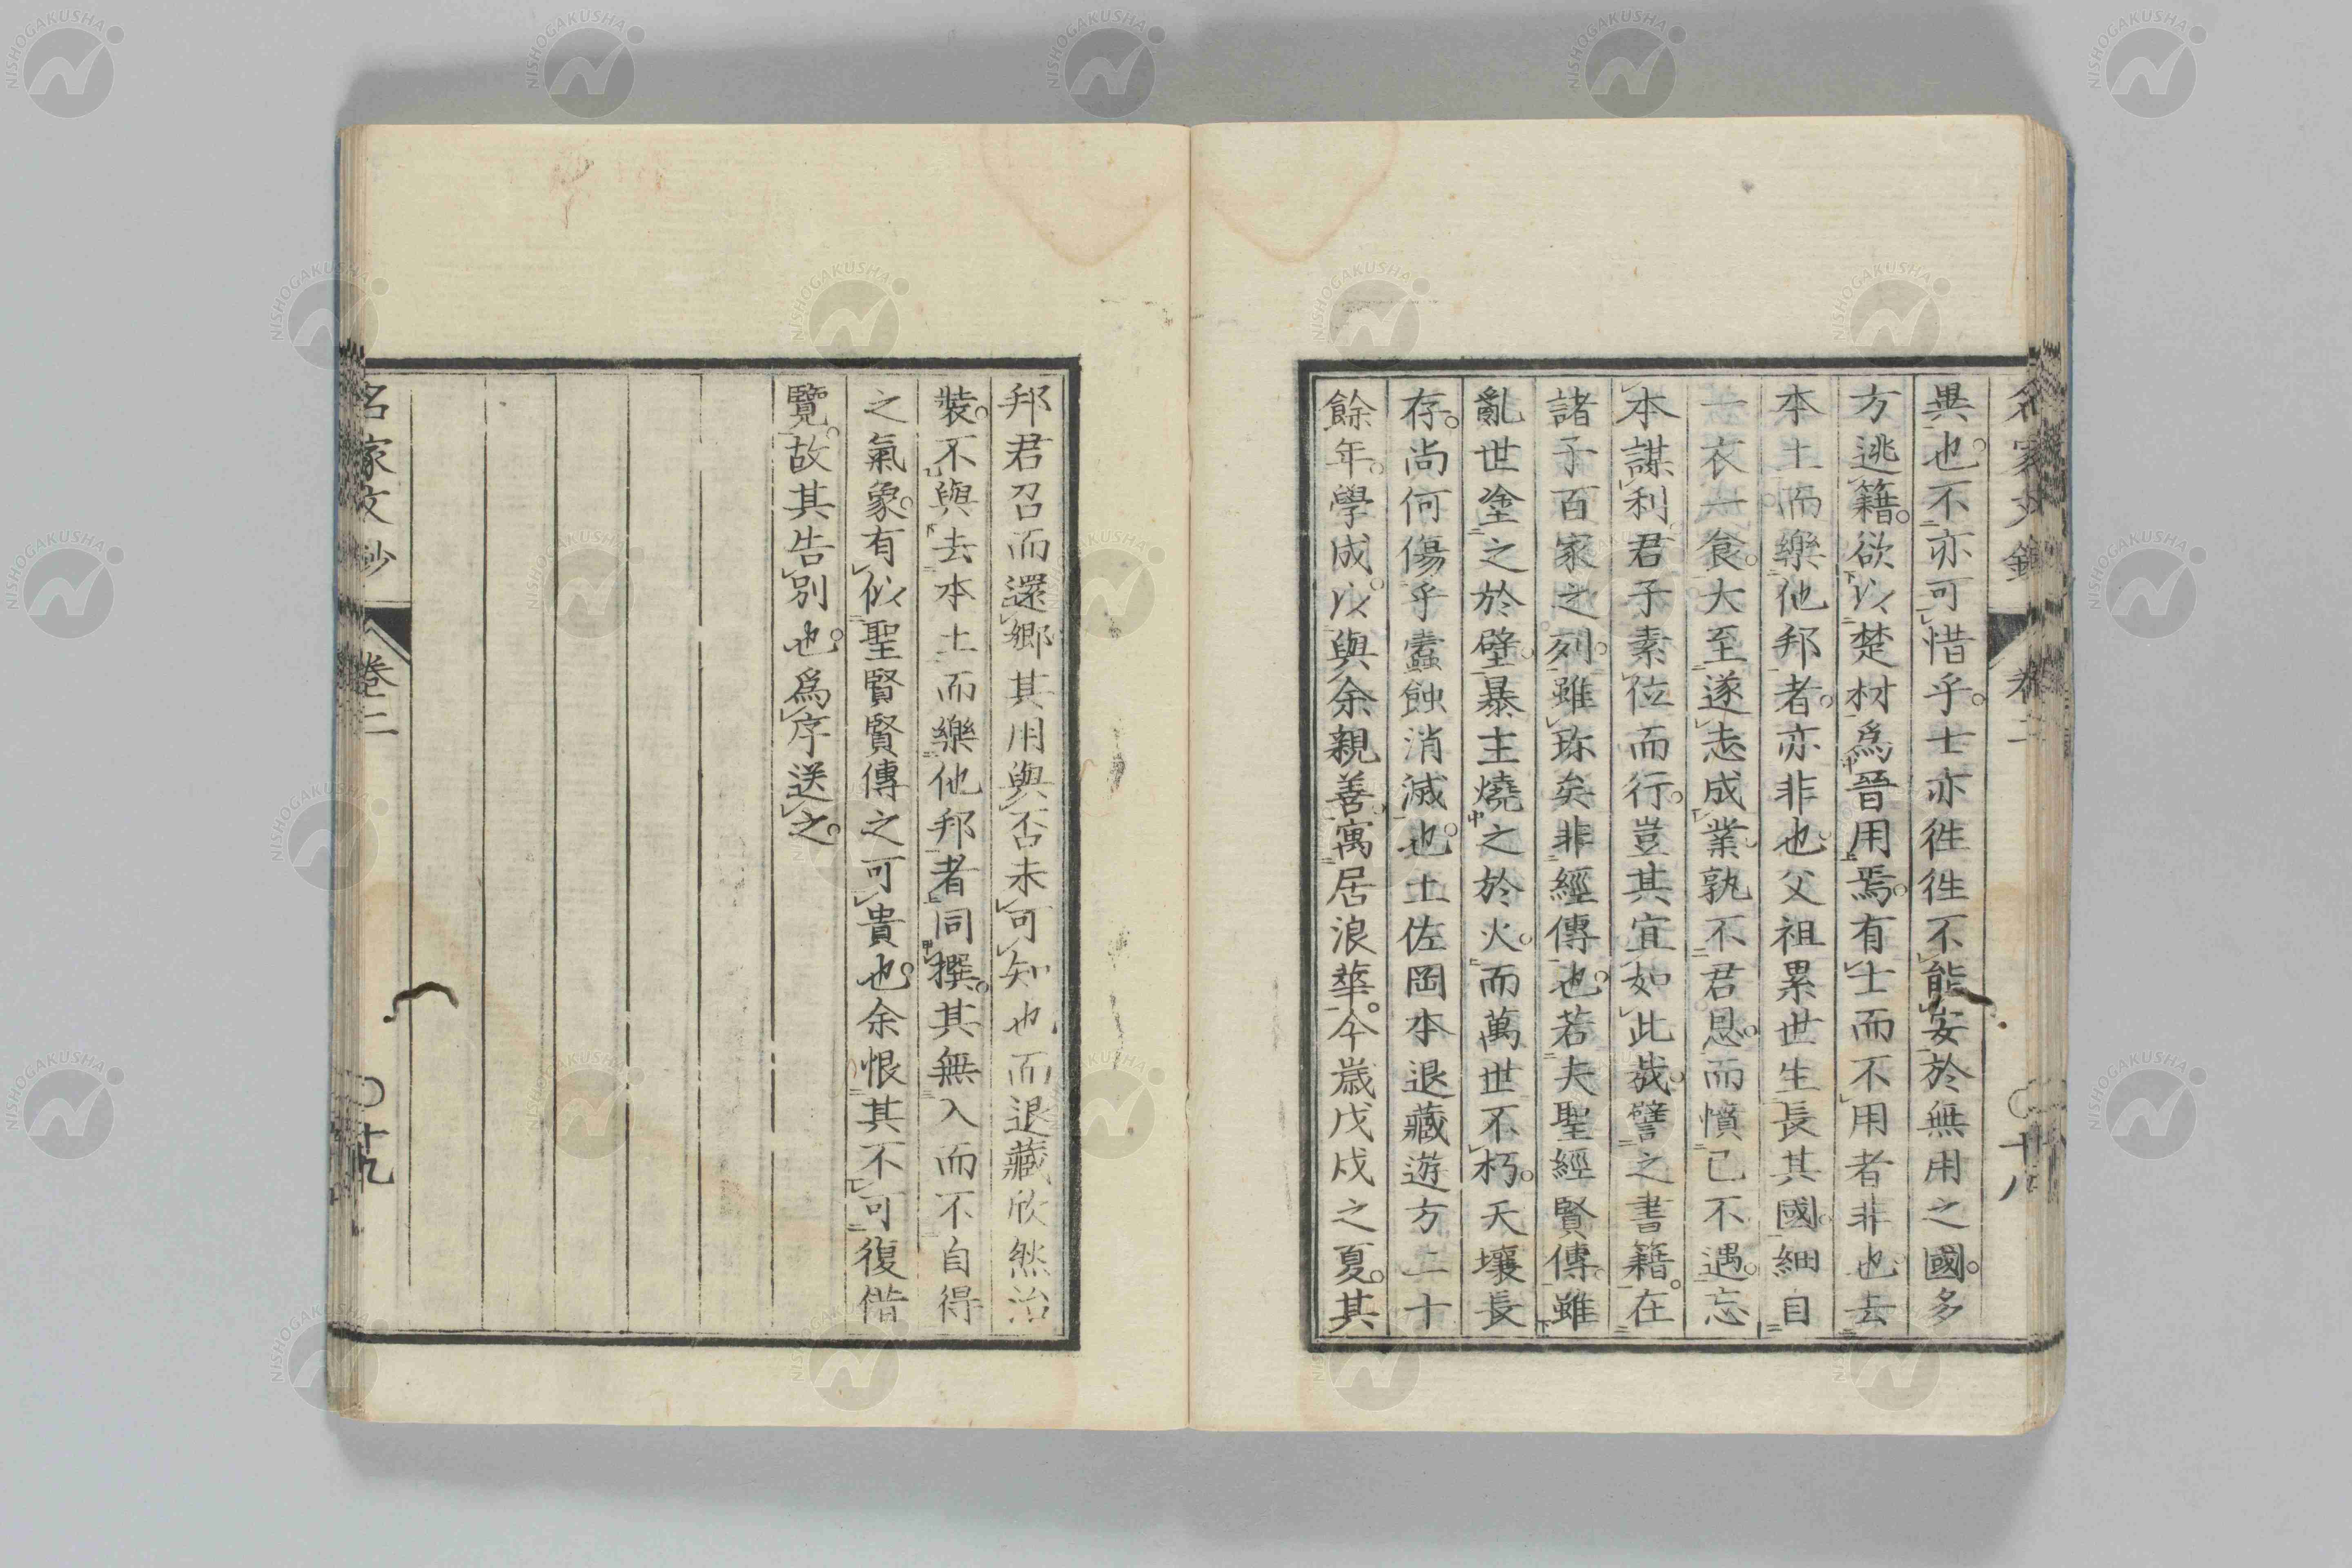 名家文鈔 卷二 〇十八
異也。不亦可惜乎。士亦徃徃不能安於無用之國。多
方逃籍。欲以楚材爲晉用焉。有士而不用者非也。去
本土而樂他邦者。亦非也。父祖累世生長其國。細自
一衣一食。大至遂志成業。孰不君恩。而憤己不遇。忘
本謀利。君子素位而行。豈其宜如此哉。譬之書籍。在
諸子百家之列。雖珎矣。非經傳也。若夫聖經賢傳。雖
亂世塗之於壁。暴主燒之於火。而萬世不朽。天壤長
存。尚何傷乎蠹蝕消滅也。土佐岡本退藏遊方二十
餘年。學成。以與余親善。寓居浪華。今歳戊戌之夏。其
邦君召而還鄉。其用與否未可知也。而退藏欣然治
裝。不與去本土而樂他邦者同撰。其無入而不自得
之氣象。有似聖賢賢傳之可貴也。余恨其不可復借
覽。故其告別也。爲序送之。
名家文鈔 卷二 〇十九
NISHOGAKUSHA